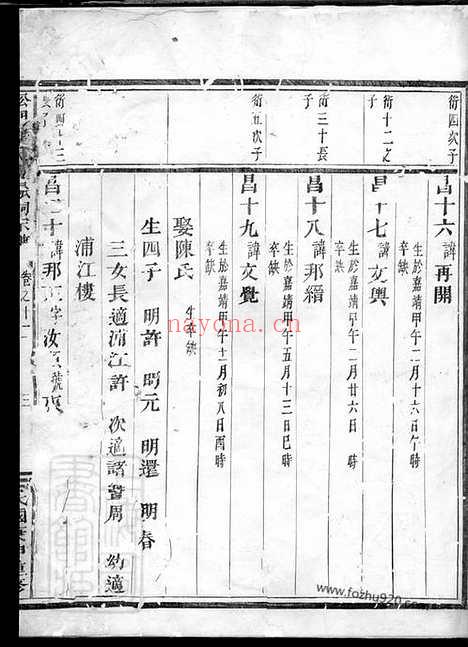 衍四次子
昌十六 諱再開
生於嘉靖甲午二月十六日午時
卒缺
衍十二之子
昌十七 諱文興
生於嘉靖甲午二月廿六日時
卒缺
衍三十長子
昌十八 諱邦縉
生於嘉靖甲午五月十三日巳時
卒缺
衍五次子
昌十九 諱文覺
生於嘉靖甲午十二月初八日酉時
卒缺
娶陳氏 生卒缺
生四子 明許 明元 明還 明春
三女長適浦江許 次適諸暨周 幼適
浦江樓
昌二十 諱邦 字汝
卷之十一
三
民國
nayona.cn
www.fozhu920.com